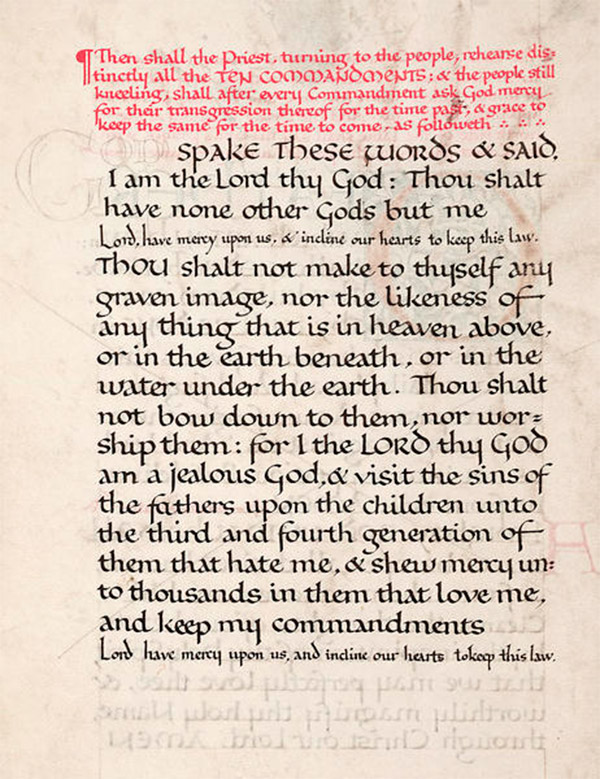 ¶Then shall the Priest, turning to the people, rehearse dis-
tinctly all the TEN COMMANDMENTS; & the people still
kneeling, shall after every Commandment ask God mercy
for their transgression thereof for the time past, & grace to
keep the same for the time to come, as followeth ∴ ∴ ∴
GOD SPAKE THESE WORDS & SAID,
I am the Lord thy God: Thou shalt
have none other Gods but me
Lord, have mercy upon us, & incline our hearts to keep this law.
THOU shalt not make to thyself any
graven image, nor the likeness of
any thing that is in heaven above,
or in the earth beneath, or in the
water under the earth. Thou shalt
not bow down to them, nor wor=
ship them: for I the LORD thy GOD
am a jealous God, & visit the sins of
the fathers upon the children unto
the third and fourth generation of
them that hate me, & shew mercy un=
to thousands in them that love me,
and keep my commandments
Lord have mercy upon us, and incline our hearts to keep this law.